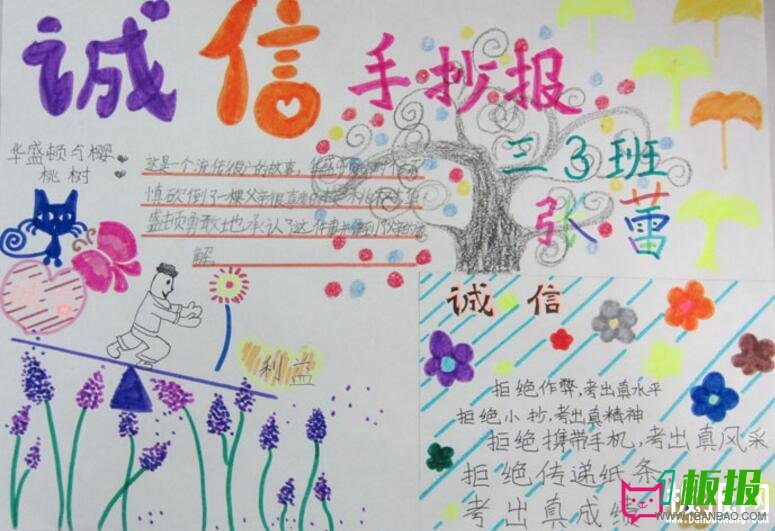 诚信手抄报
三3班
张蕾
华盛顿与樱
桃树
这是一个流传很广的故事，华盛
慎砍倒了一棵父亲很喜
盛顿勇敢地承认了这件事
解
诚信
利益
诚 信
拒绝作弊，考出真水平
拒绝小抄，考出真精神
拒绝携带手机，考出真风采
拒绝传递纸条
考出真成绩
板报网
WWW.1BANBAO.COM